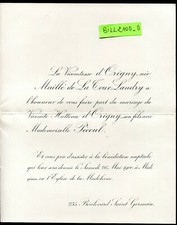 BILLZNOD_D
La Vicomtesse d'Origny, née
Maillé de La Tour Landry a
l'honneur de vous faire part du mariage du
Vicomte d'Origny, son fils, avec
Mademoiselle Pécoul.
Et vous prie d'assister à la bénédiction nuptiale
qui leur sera donnée le Samedi 26 Mai à Midi
en l'Eglise de la Madeleine.
235 Boulevard Saint Germain.